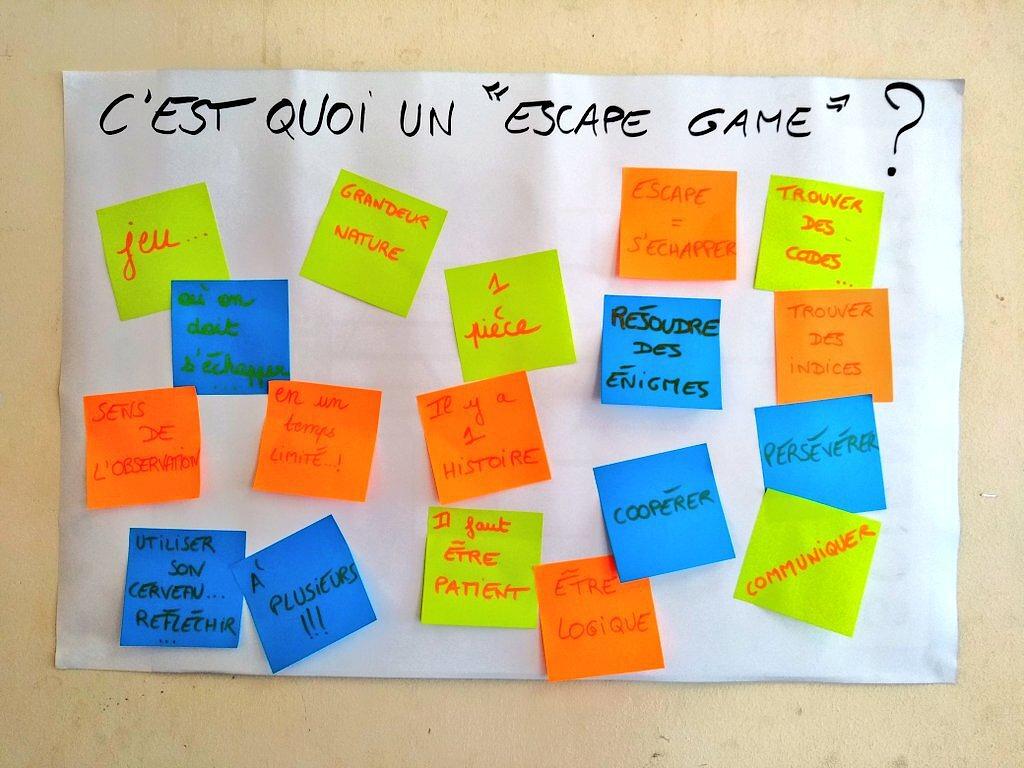 C'EST QUOI UN "ESCAPE GAME" ?
jeu...
GRANDEUR
NATURE
ESCAPE
=
S'ECHAPPER
TROUVER
DES
CODES
...
où on
doit
s'échapper
....
1
pièce
RÉSOUDRE
DES
ÉNIGMES
TROUVER
DES
INDICES
SENS
DE
L'OBSERVATION
en un
temps
LIMITÉ...!
Il y a
1
HISTOIRE
PERSÉVÉRER
COOPÉRER
UTILISER
SON
CERVEAU...
RÉFLÉCHIR
...
À
PLUSIEURS
!!!
Il faut
ÊTRE
PATIENT
ÊTRE
LOGIQUE
COMMUNIQUER